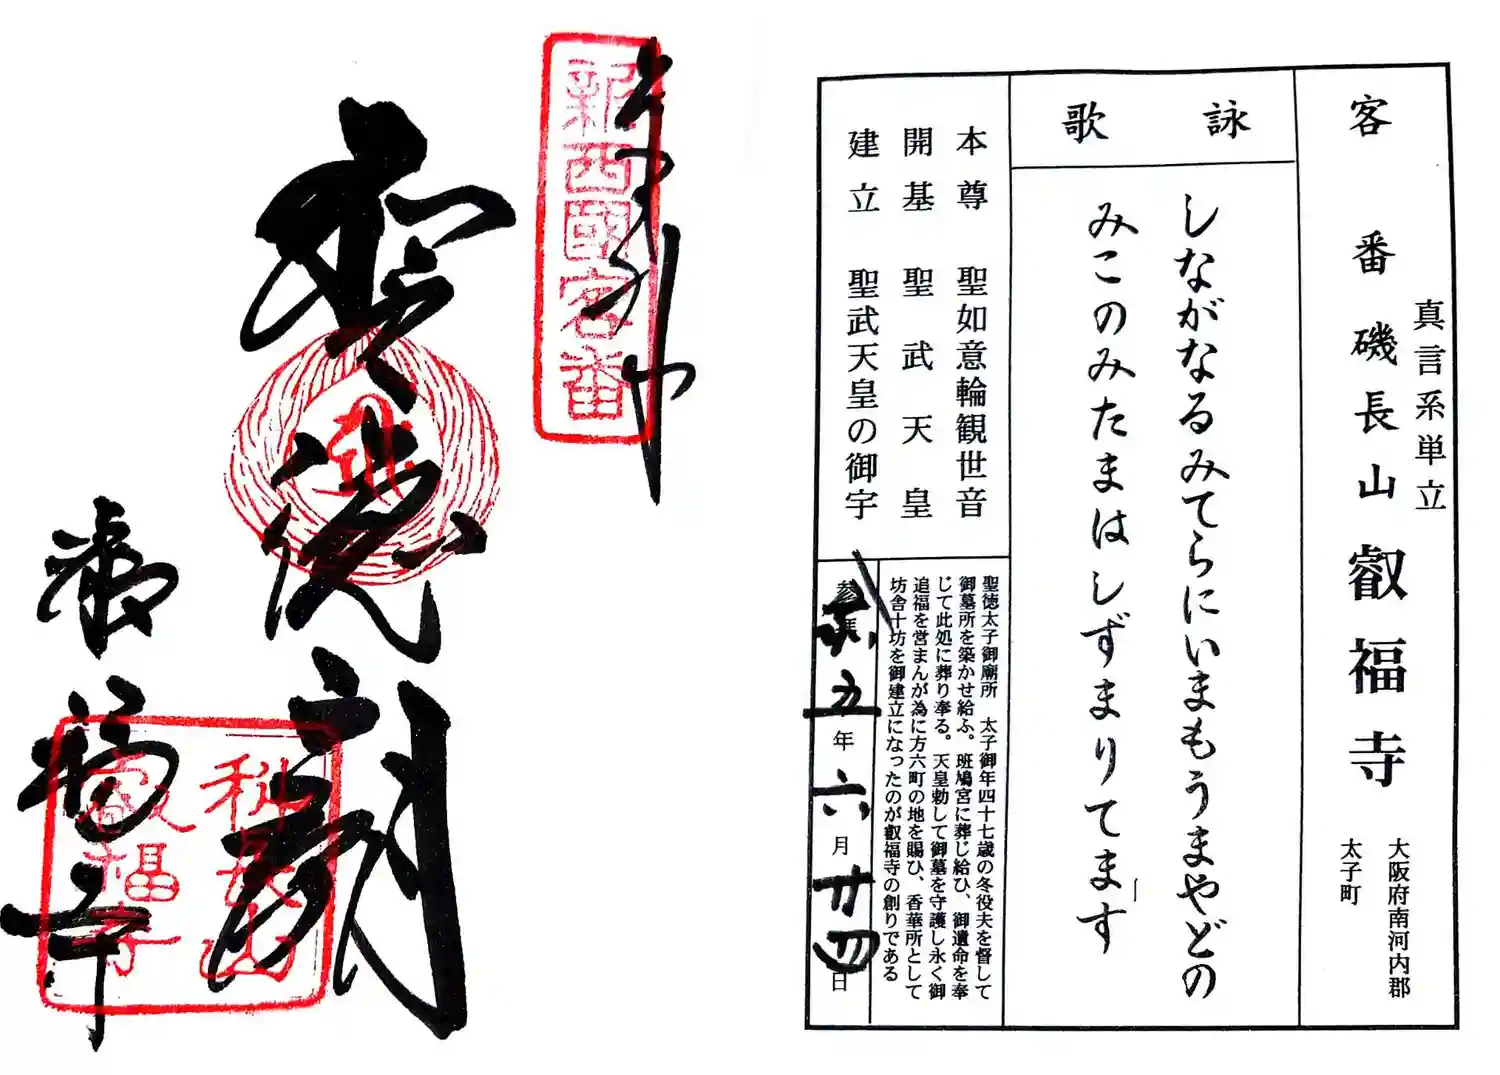 客番 磯長山 叡福寺
真言系単立
大阪府南河内郡
太子町
詠歌
しながなるみてらにいまもうまやどの
みこのみたまはしずまりてます
本尊 聖如意輪観世音
開基 聖武天皇
建立 聖武天皇の御宇
聖徳太子御廟所 太子御年四十七歳の冬役夫を督して
御墓所を築かせ給ふ。班鳩宮に葬じ給ひ、御遺命を奉
じて此処に葬り奉る。天皇勅して御墓を守護し永く御
追福を営まんが為に方六町の地を賜ひ、香華所として
坊舎十坊を御建立になったのが叡福寺の創りである
五年六月廿四日
新西國客番
聖徳廟
叡福寺
磯長山
叡福寺